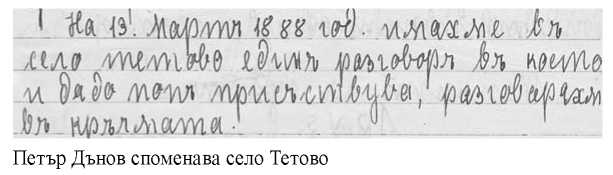 На 13! мартъ 1888 год. имахме въ
село тетово единъ разговоръ въ което
и дадо попъ присъствува, разговарахм
въ кръчмата.
Петър Дънов споменава село Тетово